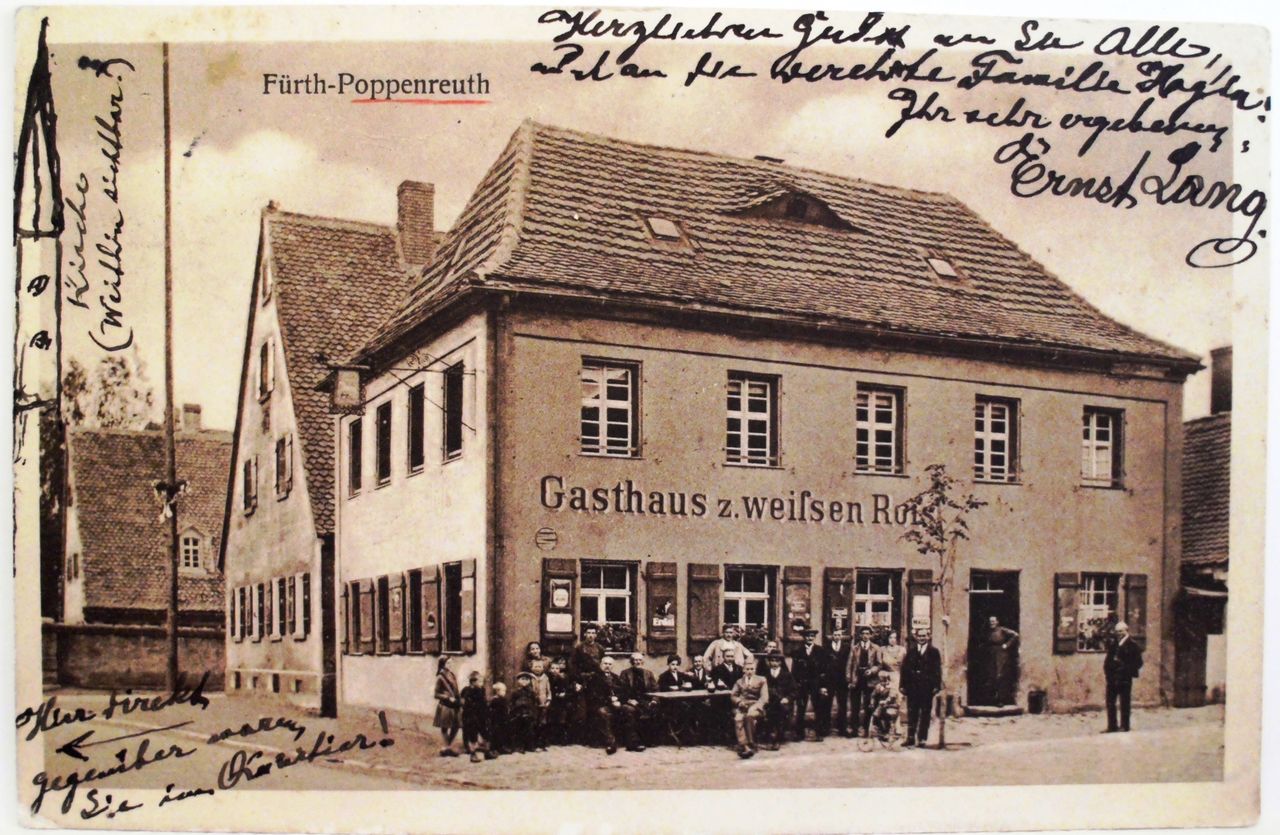 Herzlichen Gruss an Sie Alle,
auch an die verehrte Familie
Ihr sehr ergebener
Ernst Lang.
Fürth-Poppenreuth
Kirche
(Weithin sichtbar.)
Gasthaus z. weiſsen Roſ
Erdal
Hier direkt
gegenüber waren
Sie im Quartier!